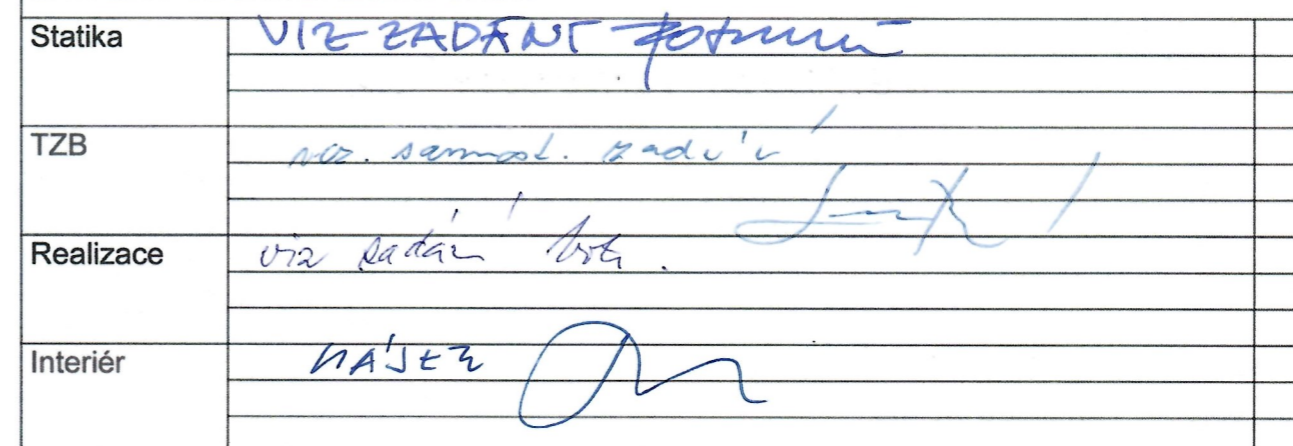 Statika VIZ ZADÁNÍ
TZB viz. samost. zadání
Realizace viz zadání
Interiér HÁJEK